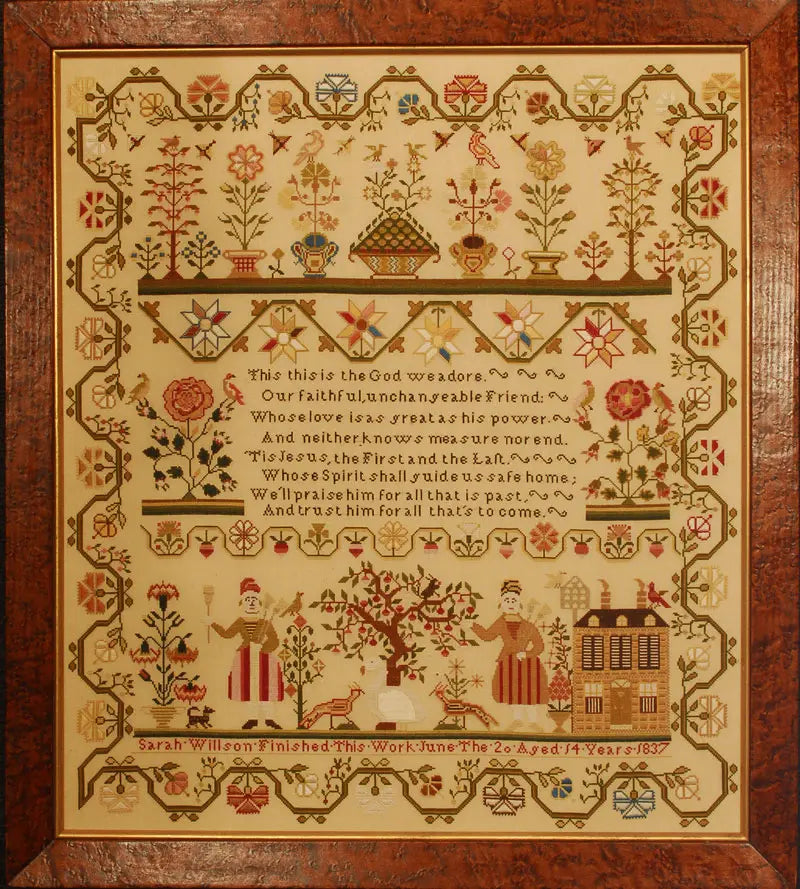 This this is the God we adore.
Our faithful, unchangeable Friend:
Whose love is as great as his power.
And neither knows measure nor end.
'Tis Jesus, the First and the Last,
Whose Spirit shall guide us safe home;
We'll praise him for all that is past,
And trust him for all that's to come.
Sarah·Willson·Finished·This·Work·June·The·20·Aged·14·Years·1837